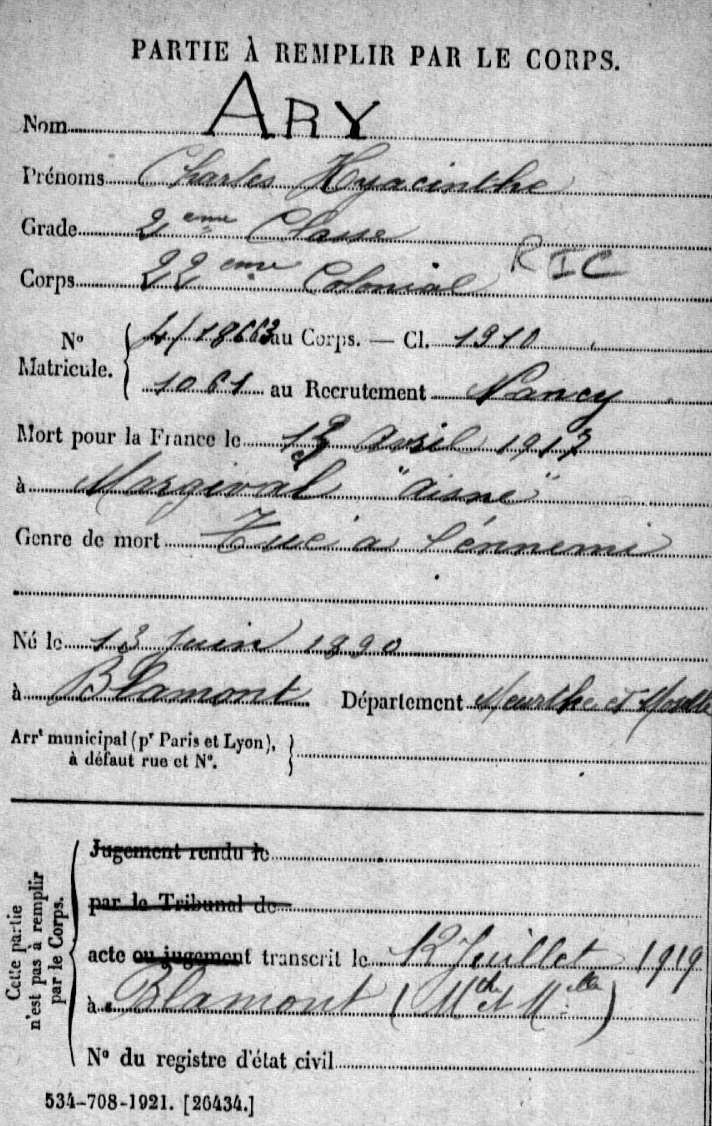 PARTIE À REMPLIR PAR LE CORPS.
Nom ARY
Prénoms Charles Hyacinthe
Grade 2ème Classe
Corps 22ème Colonial RIC
N° Matricule. 4/18663 au Corps. — Cl. 1910
1061 au Recrutement Nancy
Mort pour la France le 13 Avril 1917
à Margival "aisne"
Genre de mort Tué a l'énnemi
Né le 13 Juin 1890
à Blamont Département Meurthe et Moselle
Arrt municipal (pr Paris et Lyon),
à défaut rue et N°.
Cette partie n'est pas à remplir par le Corps.
Jugement rendu le
par le Tribunal de
acte ou jugement transcrit le 12 Juillet 1919
à Blamont (Mthe et Mlle)
N° du registre d'état civil
534-708-1921. [26434.]